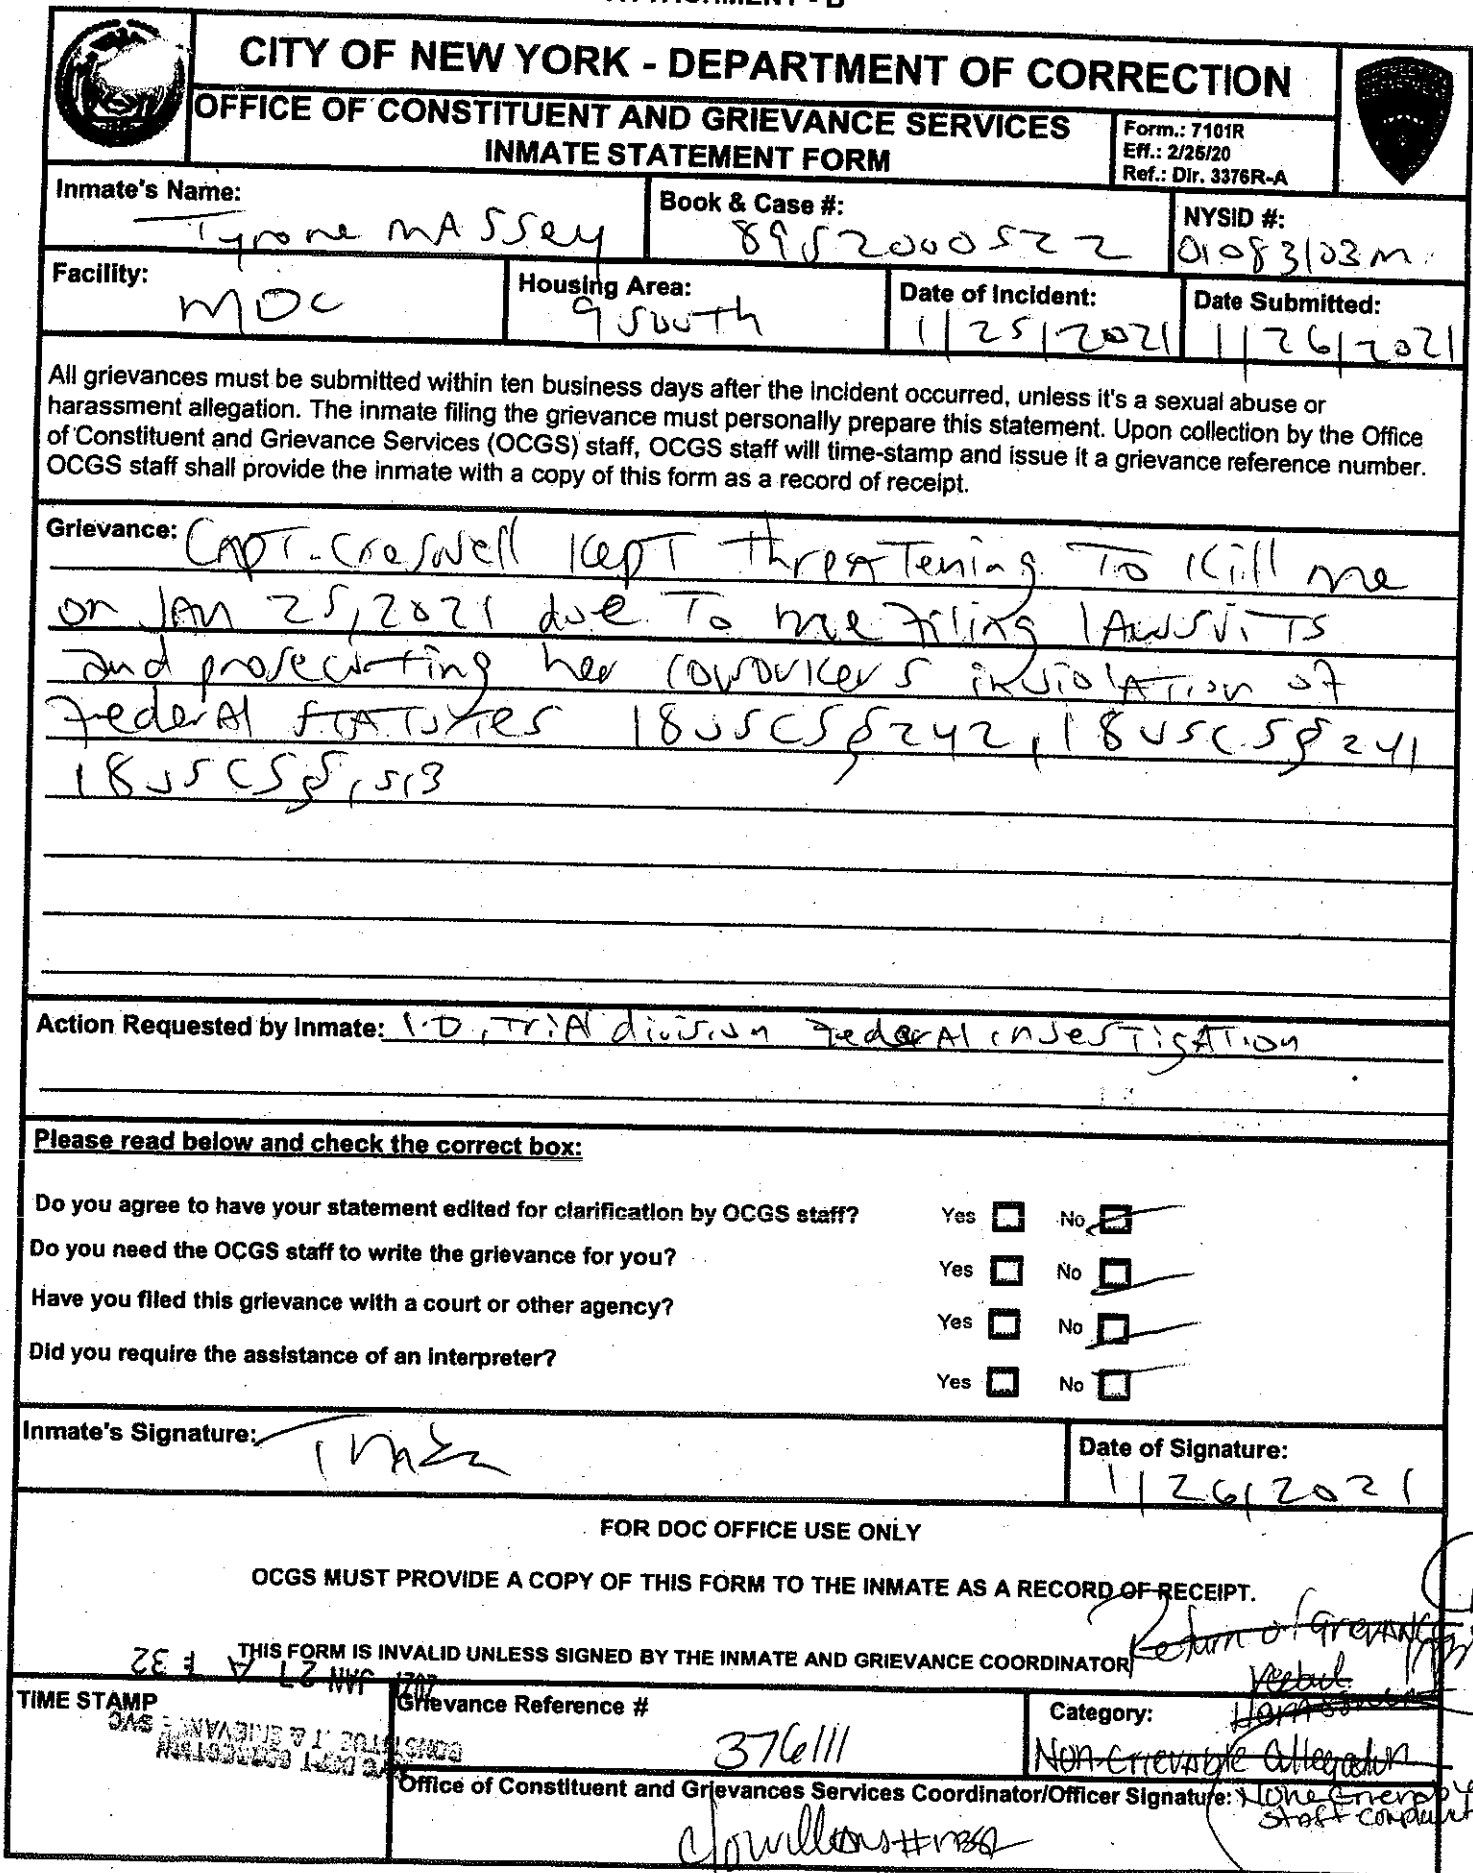 CITY OF NEW YORK - DEPARTMENT OF CORRECTION
OFFICE OF CONSTITUENT AND GRIEVANCE SERVICES
INMATE STATEMENT FORM
Form.: 7101R
Eff.: 2/26/20
Ref.: Dir. 3376R-A
Inmate's Name:
Tyrone MASSey
Book & Case #:
8952000522
NYSID #:
01083103M
Facility:
MDC
Housing Area:
9 South
Date of Incident:
1/25/2021
Date Submitted:
1/26/2021
All grievances must be submitted within ten business days after the incident occurred, unless it's a sexual abuse or
harassment allegation. The inmate filing the grievance must personally prepare this statement. Upon collection by the Office
of Constituent and Grievance Services (OCGS) staff, OCGS staff will time-stamp and issue it a grievance reference number.
OCGS staff shall provide the inmate with a copy of this form as a record of receipt.
Grievance: CAPT. Creswell kept threatening To kill me
on JAN 25, 2021 due To me filing lAwsuiTs
and prosecuting her coworkers in violATion of
FederAl STATutes 18 USCS § 242, 18 USCS § 241
18 USCS § 1513
Action Requested by Inmate: I.D, TriAl division FederAl invesTigATion
Please read below and check the correct box:
Do you agree to have your statement edited for clarification by OCGS staff? Yes No
Do you need the OCGS staff to write the grievance for you? Yes No
Have you filed this grievance with a court or other agency? Yes No
Did you require the assistance of an interpreter? Yes No
Inmate's Signature:
Date of Signature:
1/26/2021
FOR DOC OFFICE USE ONLY
OCGS MUST PROVIDE A COPY OF THIS FORM TO THE INMATE AS A RECORD OF RECEIPT.
THIS FORM IS INVALID UNLESS SIGNED BY THE INMATE AND GRIEVANCE COORDINATOR
Return of Grievance
Verbal
Harassment
TIME STAMP
2021 JAN 27 A 32
Grievance Reference #
376111
Category:
Non-Grievable Allegation
Office of Constituent and Grievances Services Coordinator/Officer Signature:
Staff complaint